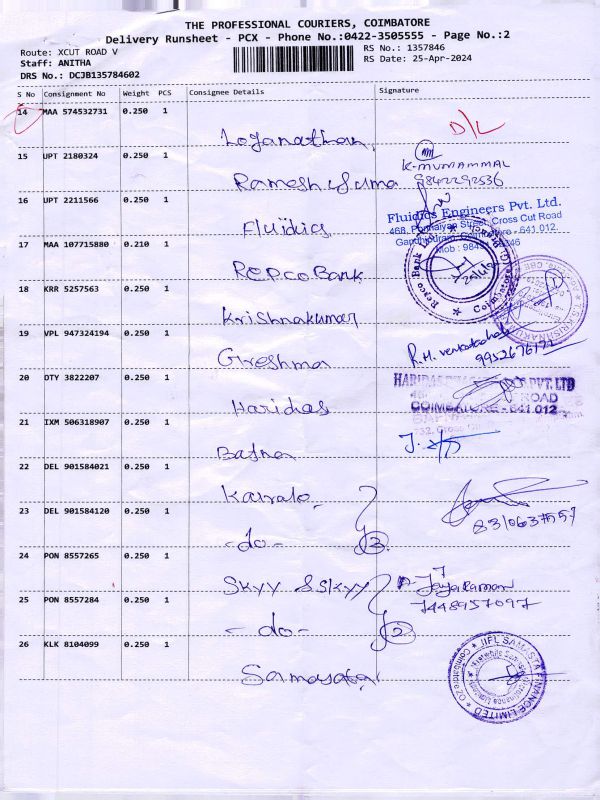 THE PROFESSIONAL COURIERS, COIMBATORE
Delivery Runsheet - PCX - Phone No.:0422-3505555 - Page No.:2
Route: XCUT ROAD V
RS No.: 1357846
Staff: ANITHA
RS Date: 25-Apr-2024
DRS No.: DCJB135784602
S No Consignment No Weight PCS Consignee Details Signature
14 MAA 574532731 0.250 1 Loganathan D/L
15 UPT 2180324 0.250 1 Ramesh
9842292536
16 UPT 2211566 0.250 1 Fluidics
Fluidics Engineers Pvt. Ltd.
468, Ponnaiyan Street, Cross Cut Road
Gandhipuram, Coimbatore - 641 012.
17 MAA 107715880 0.210 1 Repco Bank
18 KRR 5257563 0.250 1 Krishnakumar
19 VPL 947324194 0.250 1 Greshma
20 DTY 3822207 0.250 1 Haridas
HARIDAS PVT. LTD
ROAD
COIMBATORE - 641 012
21 IXM 506318907 0.250 1
22 DEL 901584021 0.250 1
23 DEL 901584120 0.250 1 -do- 3
24 PON 8557265 0.250 1 Skyy & Skyy
Jayaraman
7448957097
25 PON 8557284 0.250 1 -do- 2
26 KLK 8104099 0.250 1
IIFL SAMASTA FINANCE LIMITED